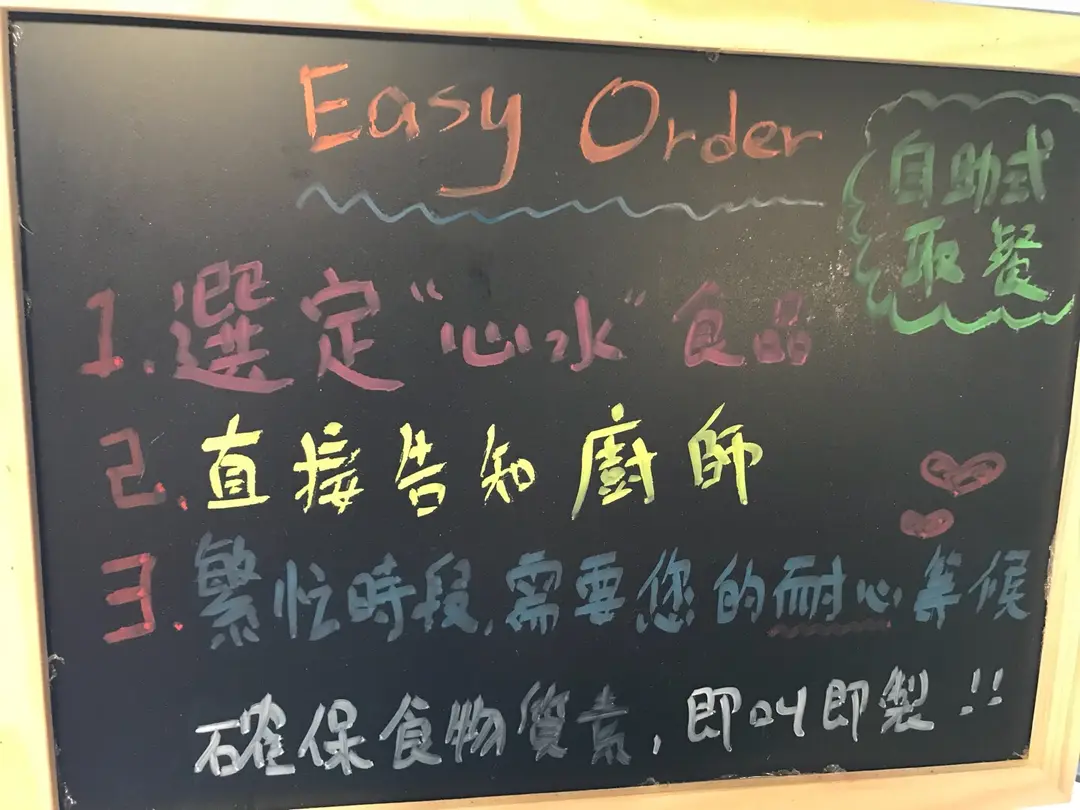 Easy Order
自助式
取餐
1. 選定“心水”食品
2. 直接告知廚師
3. 繁忙時段,需要您的耐心等候
確保食物質素,即叫即製!!